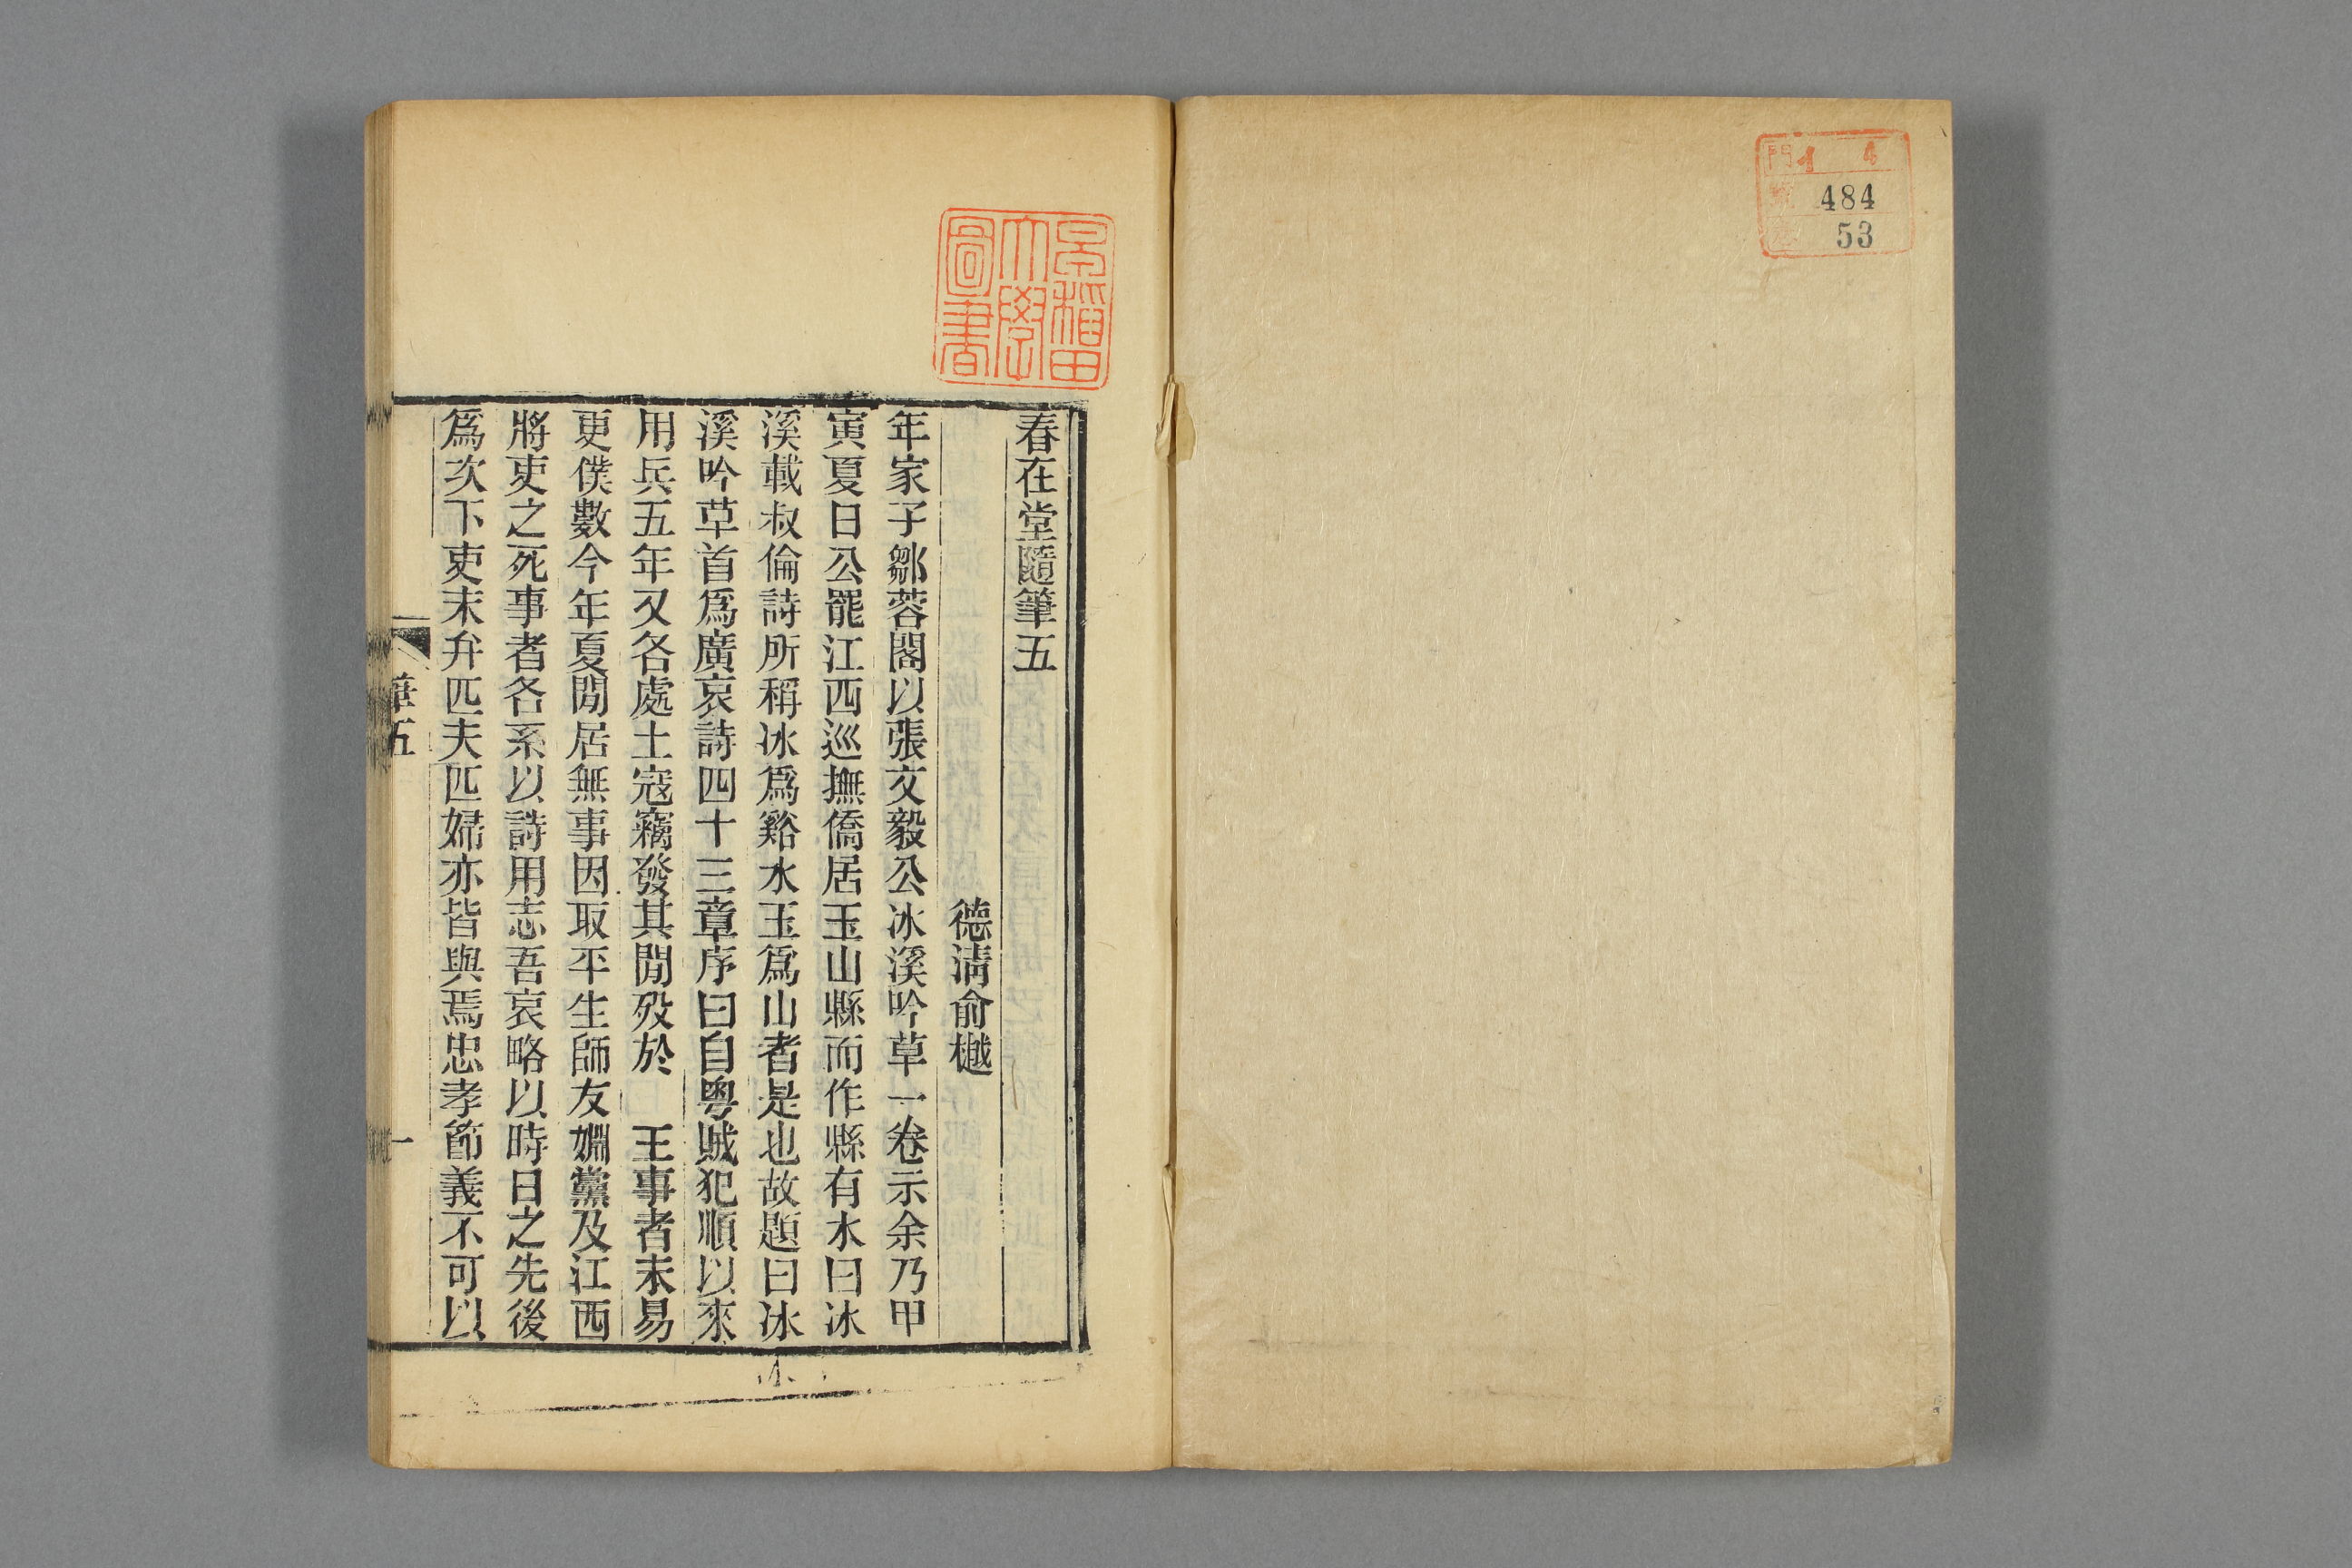 門 1 4
號 484
53
早稲田
大學
圖書
春在堂隨筆五
德淸俞樾
年家子鄒蓉閣以張文毅公冰溪吟草一卷示余乃甲
寅夏日公罷江西巡撫僑居玉山縣而作縣有水曰冰
溪載叔倫詩所稱冰爲谿水玉爲山者是也故題曰冰
溪吟草首爲廣哀詩四十三章序曰自粵賊犯順以來
用兵五年又各處土寇竊發其閒歿於 王事者未易
更僕數今年夏閒居無事因取平生師友婣黨及江西
將吏之死事者各系以詩用志吾哀略以時日之先後
爲次下吏末弁匹夫匹婦亦皆與焉忠孝節義不可以
筆五
一